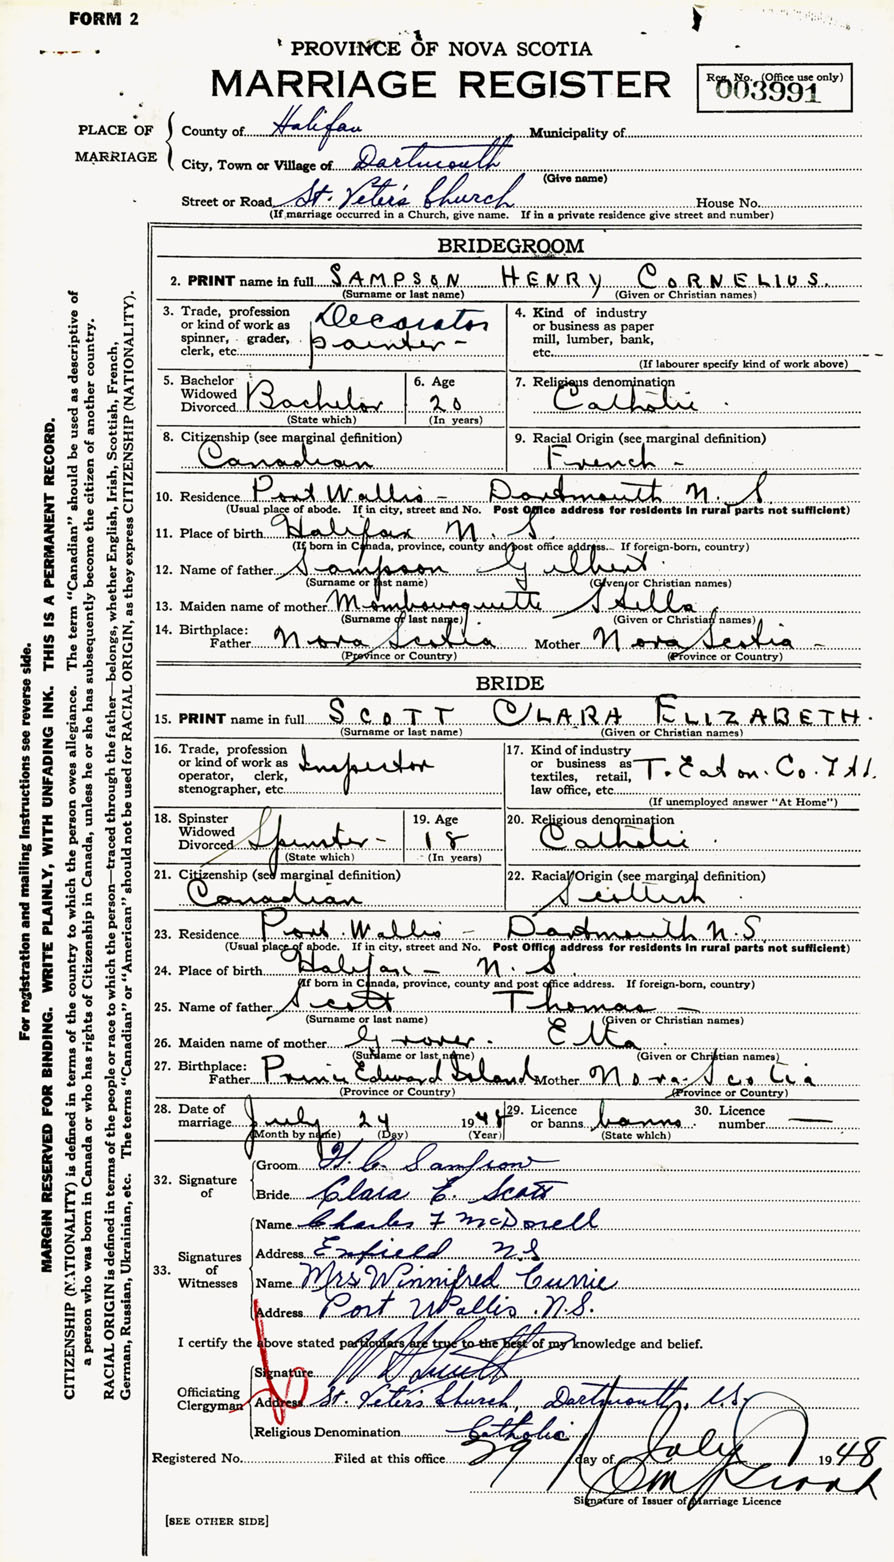 FORM 2
PROVINCE OF NOVA SCOTIA
MARRIAGE REGISTER
Reg. No. (Office use only)
003991
PLACE OF MARRIAGE
County of Halifax Municipality of
City, Town or Village of Dartmouth
(Give name)
Street or Road St. Peter's Church House No.
(If marriage occurred in a Church, give name. If in a private residence give street and number)
BRIDEGROOM
2. PRINT name in full SAMPSON HENRY CORNELIUS.
(Surname or last name) (Given or Christian names)
3. Trade, profession or kind of work as spinner, grader, clerk, etc. Decorator painter -
4. Kind of industry or business as paper mill, lumber, bank, etc.
(If labourer specify kind of work above)
5. Bachelor Widowed Divorced Bachelor
(State which)
6. Age 20
(In years)
7. Religious denomination Catholic .
8. Citizenship (see marginal definition)
Canadian
9. Racial Origin (see marginal definition)
French -
10. Residence Port Wallis - Dartmouth N. S.
(Usual place of abode. If in city, street and No. Post Office address for residents in rural parts not sufficient)
11. Place of birth Halifax N. S.
(If born in Canada, province, county and post office address. If foreign-born, country)
12. Name of father Sampson Gilbert.
(Surname or last name) (Given or Christian names)
13. Maiden name of mother Mombourquette Stella
(Surname or last name) (Given or Christian names)
14. Birthplace:
Father Nova Scotia Mother Nova Scotia -
(Province or Country) (Province or Country)
BRIDE
15. PRINT name in full SCOTT CLARA ELIZABETH.
(Surname or last name) (Given or Christian names)
16. Trade, profession or kind of work as operator, clerk, stenographer, etc. Inspector
17. Kind of industry or business as textiles, retail, law office, etc. T. Eaton. Co. Ltd.
(If unemployed answer "At Home")
18. Spinster Widowed Divorced Spinster -
(State which)
19. Age 18
(In years)
20. Religious denomination
Catholic .
21. Citizenship (see marginal definition)
Canadian
22. Racial Origin (see marginal definition)
Scottish
23. Residence Port Wallis - Dartmouth N.S.
(Usual place of abode. If in city, street and No. Post Office address for residents in rural parts not sufficient)
24. Place of birth Halifax - N. S.
(If born in Canada, province, county and post office address. If foreign-born, country)
25. Name of father Scott Thomas -
(Surname or last name) (Given or Christian names)
26. Maiden name of mother Grover. Etta .
(Surname or last name) (Given or Christian names)
27. Birthplace:
Father Prince Edward Island Mother Nova Scotia
(Province or Country) (Province or Country)
28. Date of marriage July 24 1948
(Month by name) (Day) (Year)
29. Licence or banns banns
(State which)
30. Licence number —
32. Signature of
Groom H. C. Sampson
Bride Clara E. Scott
33. Signatures of Witnesses
Name Charles F McDonell
Address Enfield NS
Name Mrs Winnifred Currie
Address Port Wallis. N.S.
I certify the above stated particulars are true to the best of my knowledge and belief.
Officiating Clergyman
Signature
Address St. Peter's Church, Dartmouth, N.S.
Religious Denomination Catholic
Registered No. Filed at this office 29 day of July 1948
Signature of Issuer of Marriage Licence
[SEE OTHER SIDE]
For registration and mailing instructions see reverse side.
MARGIN RESERVED FOR BINDING. WRITE PLAINLY, WITH UNFADING INK. THIS IS A PERMANENT RECORD.
CITIZENSHIP (NATIONALITY) is defined in terms of the country to which the person owes allegiance. The term "Canadian" should be used as descriptive of
a person who was born in Canada or who has rights of Citizenship in Canada, unless he or she has subsequently become the citizen of another country.
RACIAL ORIGIN is defined in terms of the people or race to which the person—traced through the father—belongs, whether English, Irish, Scottish, French,
German, Russian, Ukrainian, etc. The terms "Canadian" or "American" should not be used for RACIAL ORIGIN, as they express CITIZENSHIP (NATIONALITY).